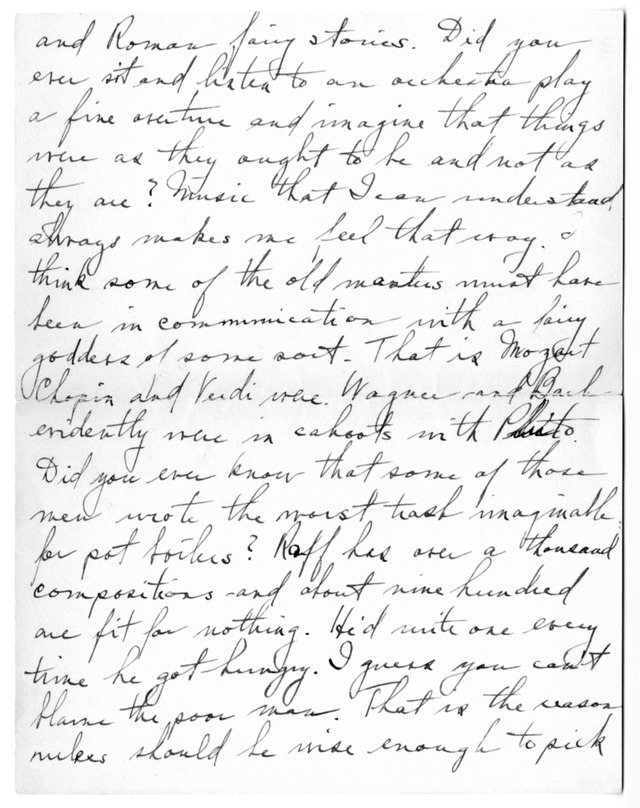 and Roman fairy stories. Did you
ever sit and listen to an orchestra play
a fine overture and imagine that things
were as they ought to be and not as
they are? Music that I can understand
always makes me feel that way. I
think some of the old masters must have
been in communication with a fairy
goddess of some sort. That is Mozart
Chopin and Verdi were. Wagner and Bach
evidently were in cahoots with Pluto.
Did you ever know that some of those
men wrote the worst trash imaginable
for pot boilers? Raff has over a thousand
compositions and about nine hundred
are fit for nothing. He'd write one every
time he got hungry. I guess you can't
blame the poor man. That is the reason
should be wise enough to pick